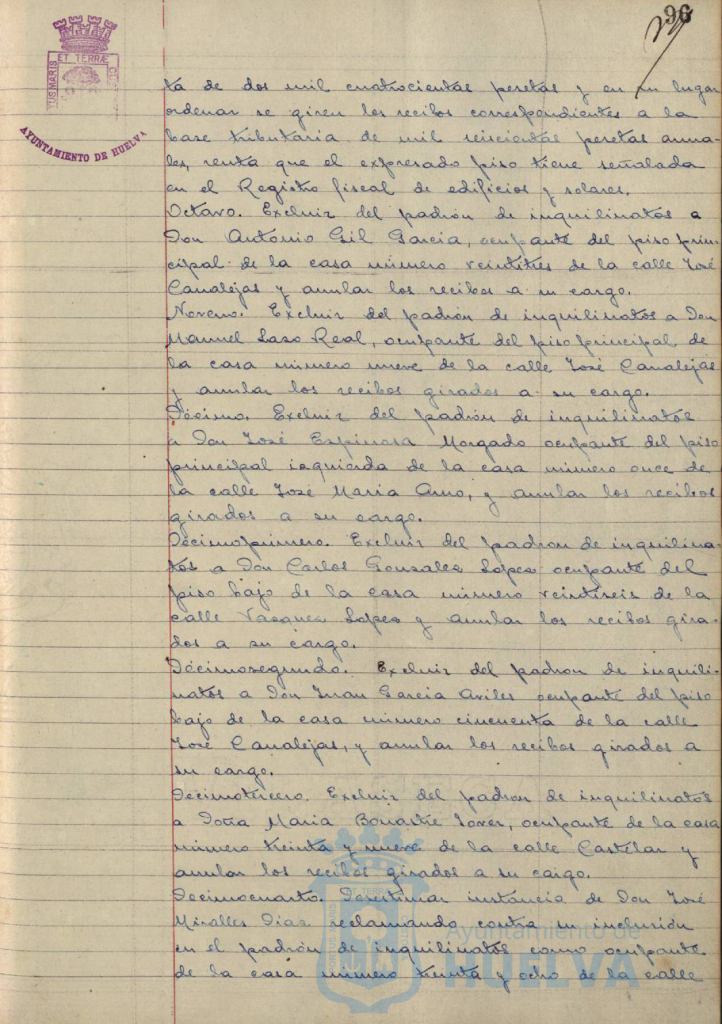 96
ET TERRÆ
AYUNTAMIENTO DE HUELVA
ta de dos mil cuatrocientas pesetas y en su lugar
ordenar se giren los recibos correspondientes a la
base tributaria de mil seiscientas pesetas anua-
les, renta que el expresado piso tiene señalada
en el Registro fiscal de edificios y solares.
Octavo. Excluir del padrón de inquilinatos a
Don Antonio Gil Garcia, ocupante del piso prin-
cipal de la casa número veintitres de la calle José
Canalejas y anular los recibos a su cargo.
Noveno. Excluir del padrón de inquilinatos a Don
Manuel Laso Real, ocupante del piso principal de
la casa número nueve de la calle José Canalejas
y anular los recibos girados a su cargo.
Décimo. Excluir del padrón de inquilinatos
a Don José Espinosa Morgado ocupante del piso
principal izquierda de la casa número once de
la calle José Maria Amo, y anular los recibos
girados a su cargo.
Décimoprimero. Excluir del padrón de inquilina-
tos a Don Carlos Gonzalez Lopez ocupante del
piso bajo de la casa número veintiseis de la
calle Vazquez Lopez y anular los recibos gira-
dos a su cargo.
Décimosegundo. Excluir del padrón de inquili-
natos a Don Juan Garcia Aviles ocupante del piso
bajo de la casa número cincuenta de la calle
José Canalejas, y anular los recibos girados a
su cargo.
Decimotercero. Excluir del padrón de inquilinatos
a Doña Maria Tover, ocupante de la casa
número treinta y nueve de la calle Castelar y
anular los recibos girados a su cargo.
Decimocuarto. Desestimar instancia de Don José
Miralles Diaz reclamando contra su inclusión
en el padrón de inquilinatos como ocupante
de la casa número treinta y ocho de la calle
Ayuntamiento de
HUELVA